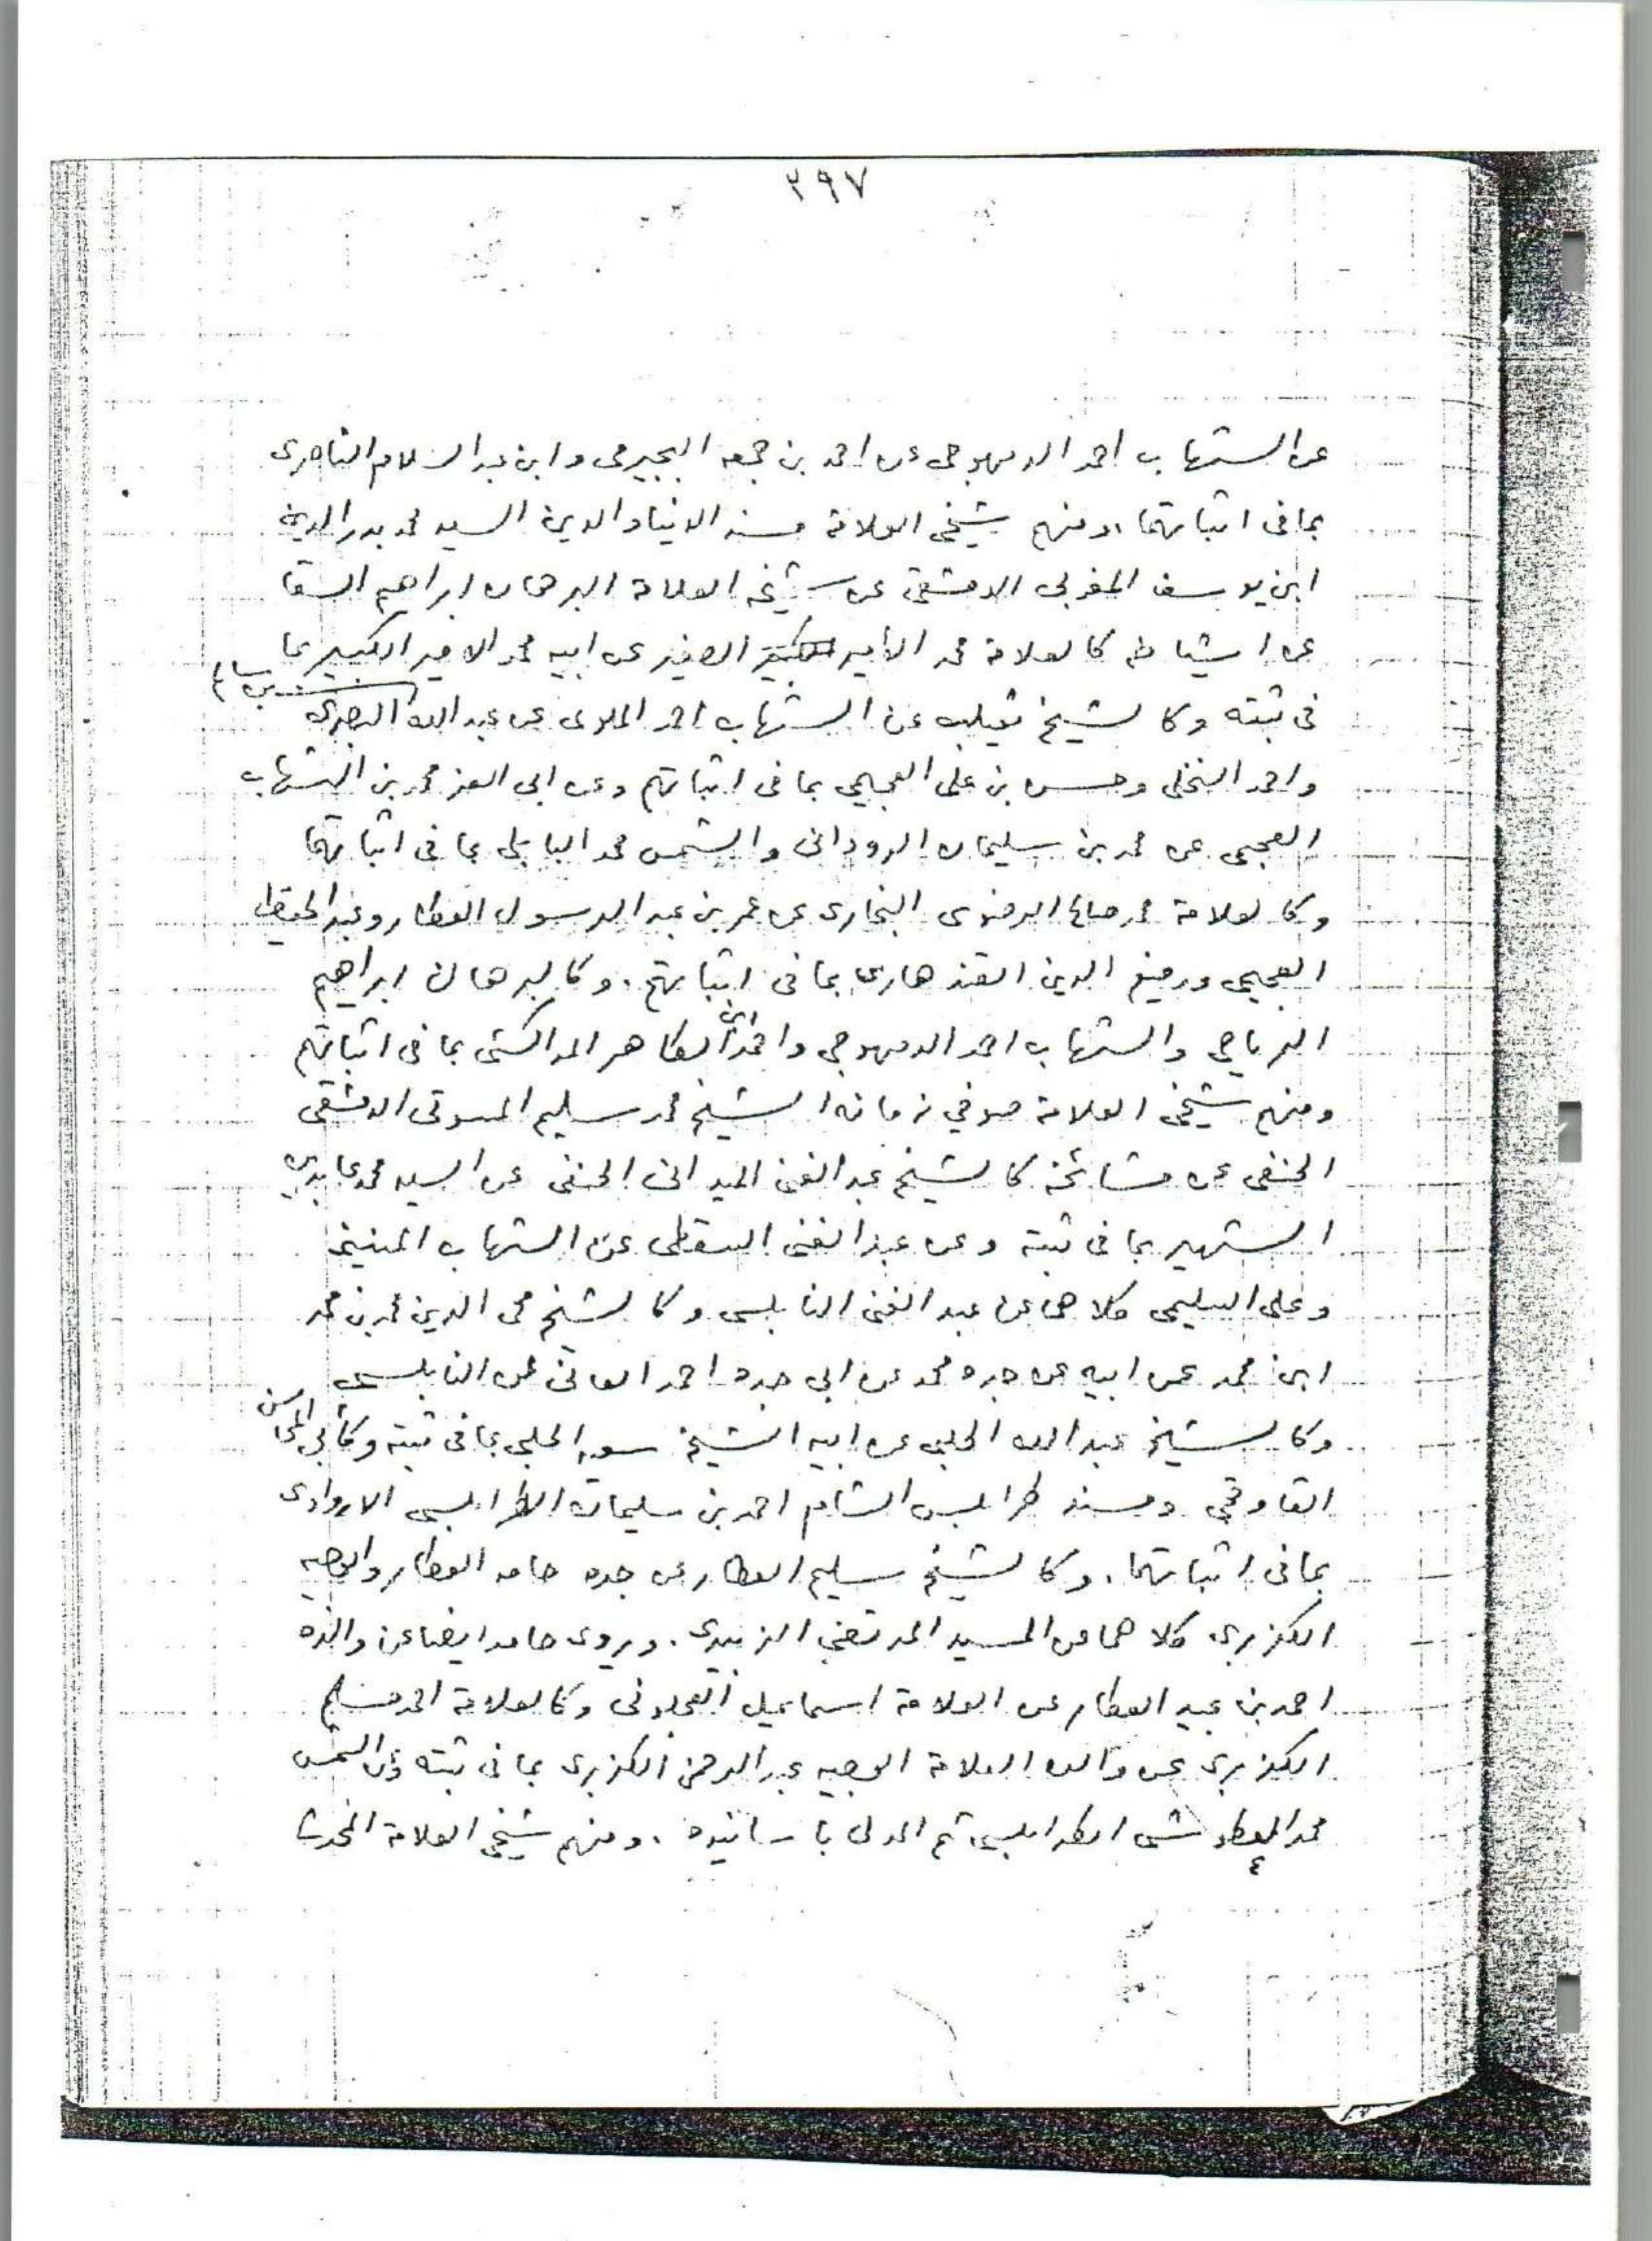 ٣٩٧
عن الشهاب احمد الدمهوجى عن احمد بن جمعه البجيرمى وابن عبد السلام الناصرى
بما فى اثباتهما. ومنهم شيخى العلامة مسند الدنيا والدين السيد محمد بدر الدين
ابن يوسف المغربى الدمشقى عن شيخه العلامة البرهان ابراهيم السقا
عن اشياخه كالعلامة محمد الامير الصغير عن ابيه محمد الامير الكبير بما
فى ثبته وكالشيخ ثعيلب عن الشهاب احمد الملوى عن عبد الله بن سالم البصرى
واحمد النخلى وحسن بن على العجيمى بما فى اثباتهم وعن ابى العز محمد بن الشهاب
العجمى عن محمد بن سليمان الرودانى والشمس محمد البابلى بما فى اثباتهما
وكالعلامة محمد صالح الرضوى البخارى عن عمر بن عبد الرسول العطار وعبد الحفيظ
العجيمى ورفيع الدين القندهارى بما فى اثباتهم. وكالبرهان ابراهيم
الرياحى والشهاب احمد الدمهوجى واحمد ابى الطاهر المراكشى بما فى اثباتهم
ومنهم شيخى العلامة صوفي زمانه الشيخ محمد سليم المسوتى الدمشقى
الحنفى عن مشائخه كالشيخ عبد الغنى الميدانى الحنفى عن السيد محمد عابدين
الشهير بما فى ثبته وعن عبد الغنى السقطى عن الشهاب المنينى
وعلى السليمى كلاهما عن عبد الغنى النابلسى وكالشيخ محى الدين محمد بن محمد
ابن محمد عن ابيه عن جده محمد عن ابى جده احمد العانى عن النابلسى
وكالشيخ عبد الله الحلبى عن ابيه الشيخ سعيد الحلبى بما فى ثبته وكابى المحاسن
القاوقجى ومسند طرابلس الشام احمد بن سليمان الطرابلسى الاروادى
بما فى اثباتهما. وكالشيخ سليم العطار عن جده حامد العطار والوجيه
الكزبرى كلاهما عن السيد المرتضى الزبيدى. ويروى حامد ايضا عن والده
احمد بن عبيد العطار عن العلامة اسماعيل العجلونى وكالعلامة احمد مسلم
الكزبرى عن والده العلامة الوجيه عبد الرحمن الكزبرى بما فى ثبته وعن الشمس
محمد العطوشى الطرابلسى ثم المدنى باسانيده. ومنهم شيخى العلامة المحدث